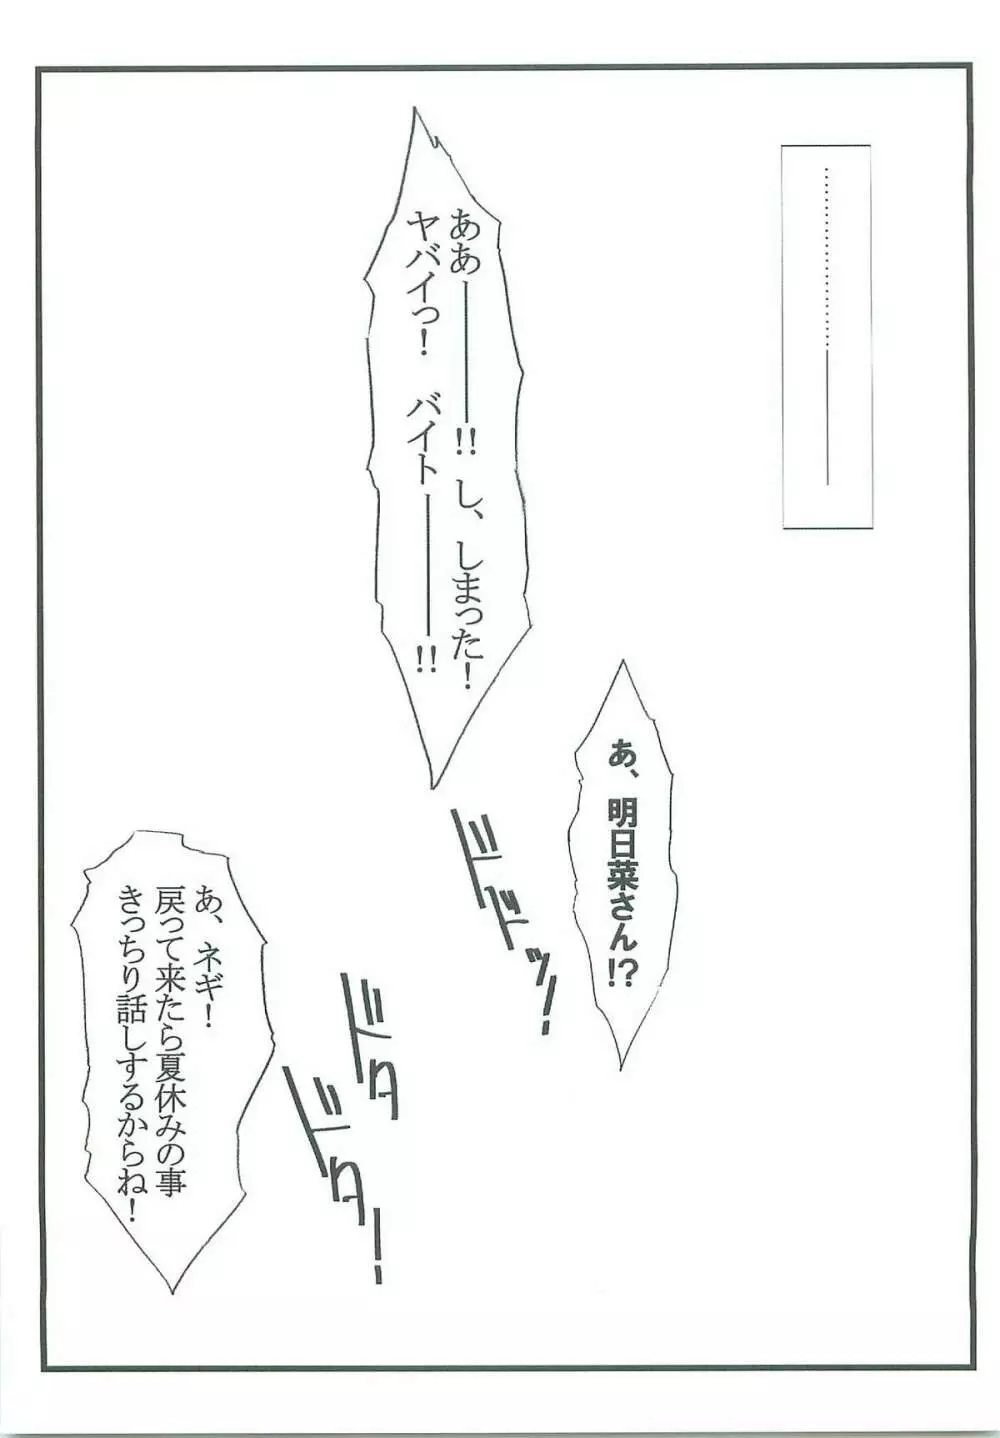 …………――――
ああ――――!! し、しまった！
ヤバイっ！ バイト――――!!
あ、明日菜さん!?
ドドッ!
ドタ
ドタ…!
あ、ネギ！
戻って来たら夏休みの事
きっちり話しするからね！